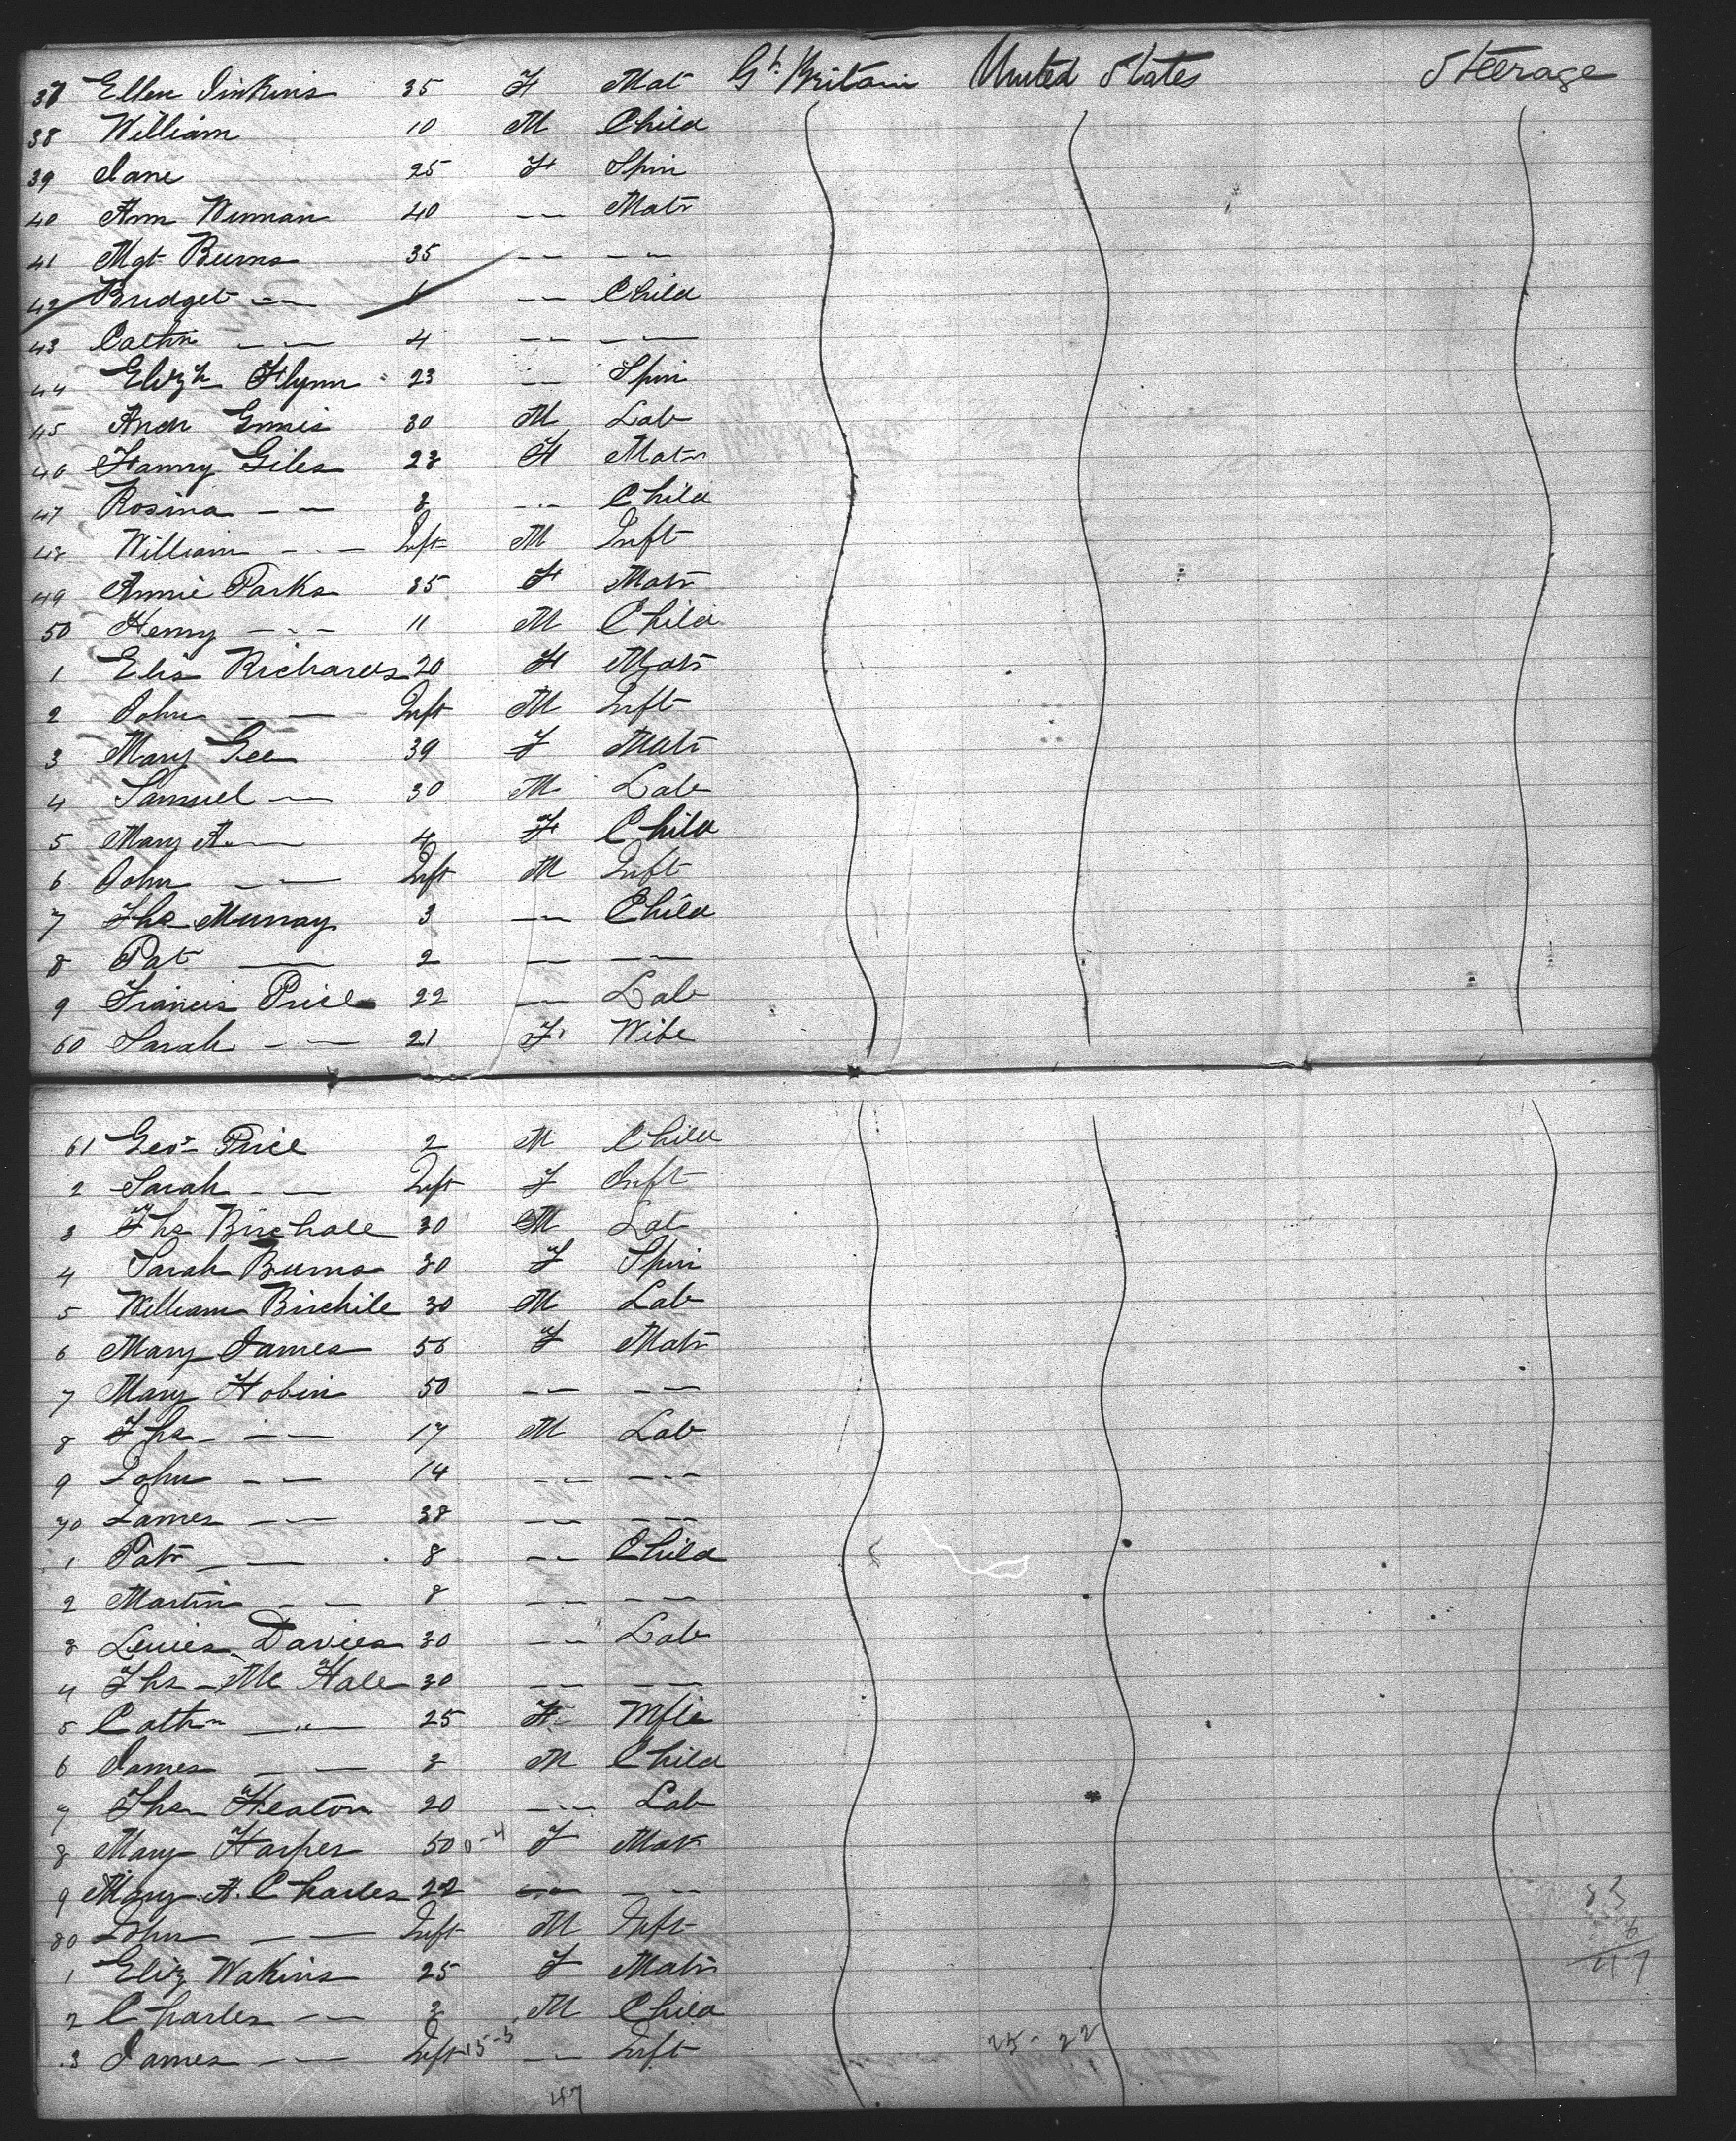 37 Ellen Jinkins 35 F Mat Gt. Britain United States Steerage
38 William 10 M Child
39 Jane 25 F Spin
40 Ann 40 -- Matr
41 Mgt Burns 35 -- --
42 Bridget -- -- Child
43 Cathn -- 4 -- --
44 Elizth Flynn 23 -- Spin
45 Andr Ennis 30 M Lab
46 Fanny Giles 28 F Matr
47 Rosina -- 3 -- Child
48 William -- Inft M Inft
49 Annie Parks 35 F Matr
50 Henry -- 11 M Child
1 Elis Richards 20 F Matr
2 John -- Inft M Inft
3 Mary Gee 39 F Matr
4 Samuel -- 30 M Lab
5 Mary A. -- 4 F Child
6 John -- Inft M Inft
7 Ths Murray 3 -- Child
8 Pat -- 2 -- --
9 Francis Price 22 -- Lab
60 Sarah -- 21 F Wife
61 Geo. Price 2 M Child
2 Sarah -- Inft F Inft
3 Ths Birchall 30 M Lab
4 Sarah Burns 30 F Spin
5 William Birchile 30 M Lab
6 Mary James 56 F Matr
7 Mary Hobin 50 -- --
8 Ths -- 17 M Lab
9 John -- 14 -- --
70 James -- 38 -- --
1 Patr -- 8 -- Child
2 Martin -- 8 -- --
3 Lewies Davies 30 -- Lab
4 Ths Mc Hale 30 -- --
5 Cathn -- 25 F Wife
6 James -- 3 M Child
7 Ths Heaton 20 -- Lab
8 Mary Harper 50 0-4 F Matr
9 Mary A. Charles 22 -- --
80 John -- Inft M Inft
1 Eliz Wakins 25 F Matr
2 Charles -- 3 M Child
3 James -- Inft 15-5 -- Inft 25-22
47